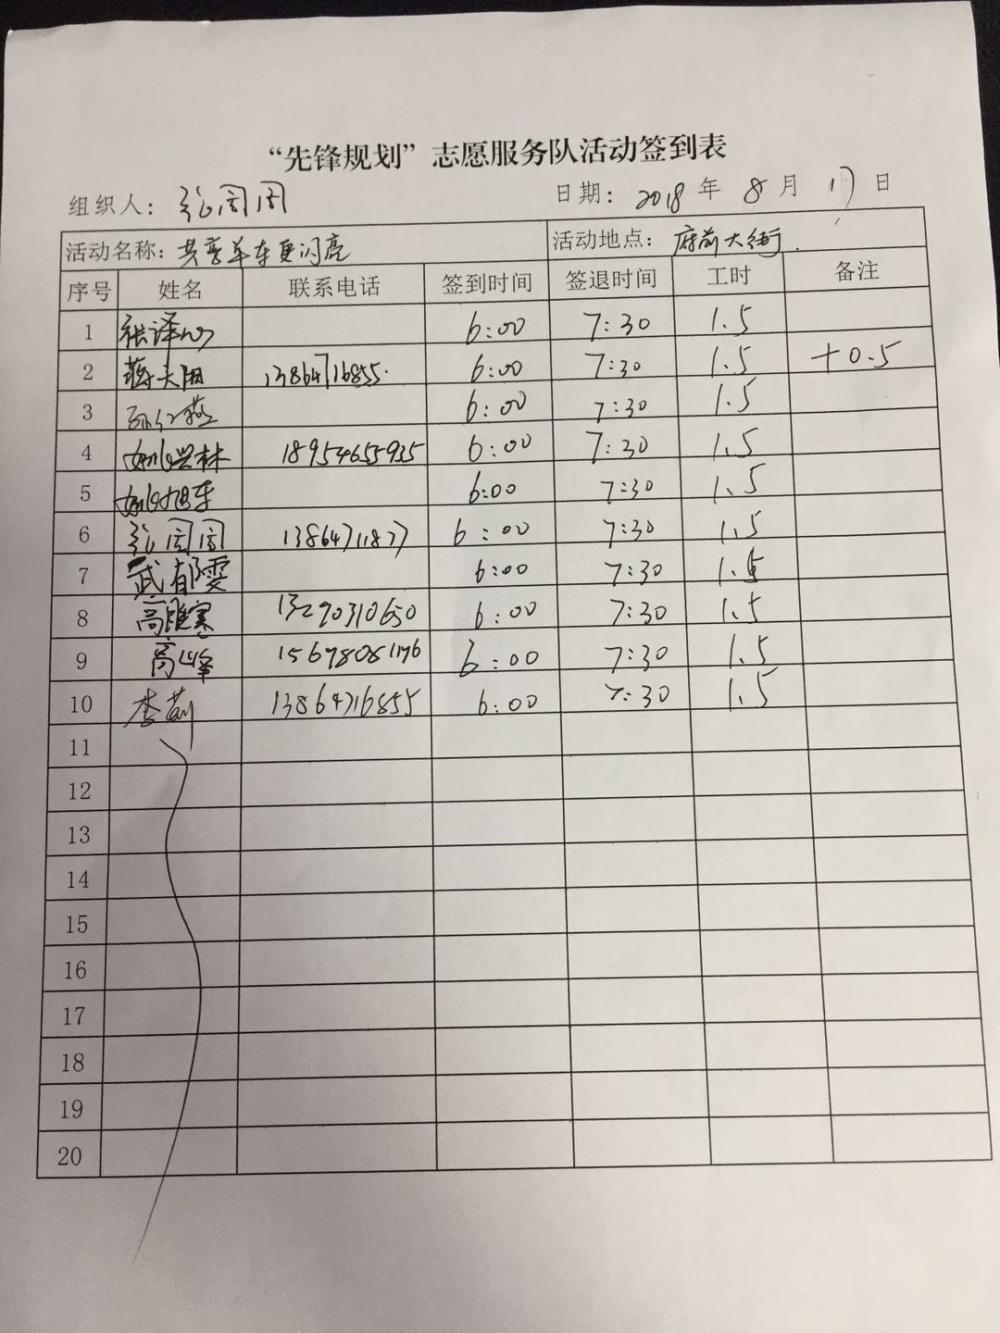 “先锋规划”志愿服务队活动签到表
组织人: 张圆圆 日期: 2018 年 8 月 17 日
活动名称: 共享单车更闪亮 活动地点: 府前大街.
序号 姓名 联系电话 签到时间 签退时间 工时 备注
1 6:00 7:30 1.5
2 13864716855. 6:00 7:30 1.5 +0.5
3 孙红燕 6:00 7:30 1.5
4 兴林 18954655935 6:00 7:30 1.5
5 6:00 7:30 1.5
6 张圆圆 13864711877 6:00 7:30 1.5
7 武郁雯 6:00 7:30 1.5
8 高雅寒 13290310650 6:00 7:30 1.5
9 高峰 6:00 7:30 1.5
10 李莉 13864716855 6:00 7:30 1.5
11
12
13
14
15
16
17
18
19
20